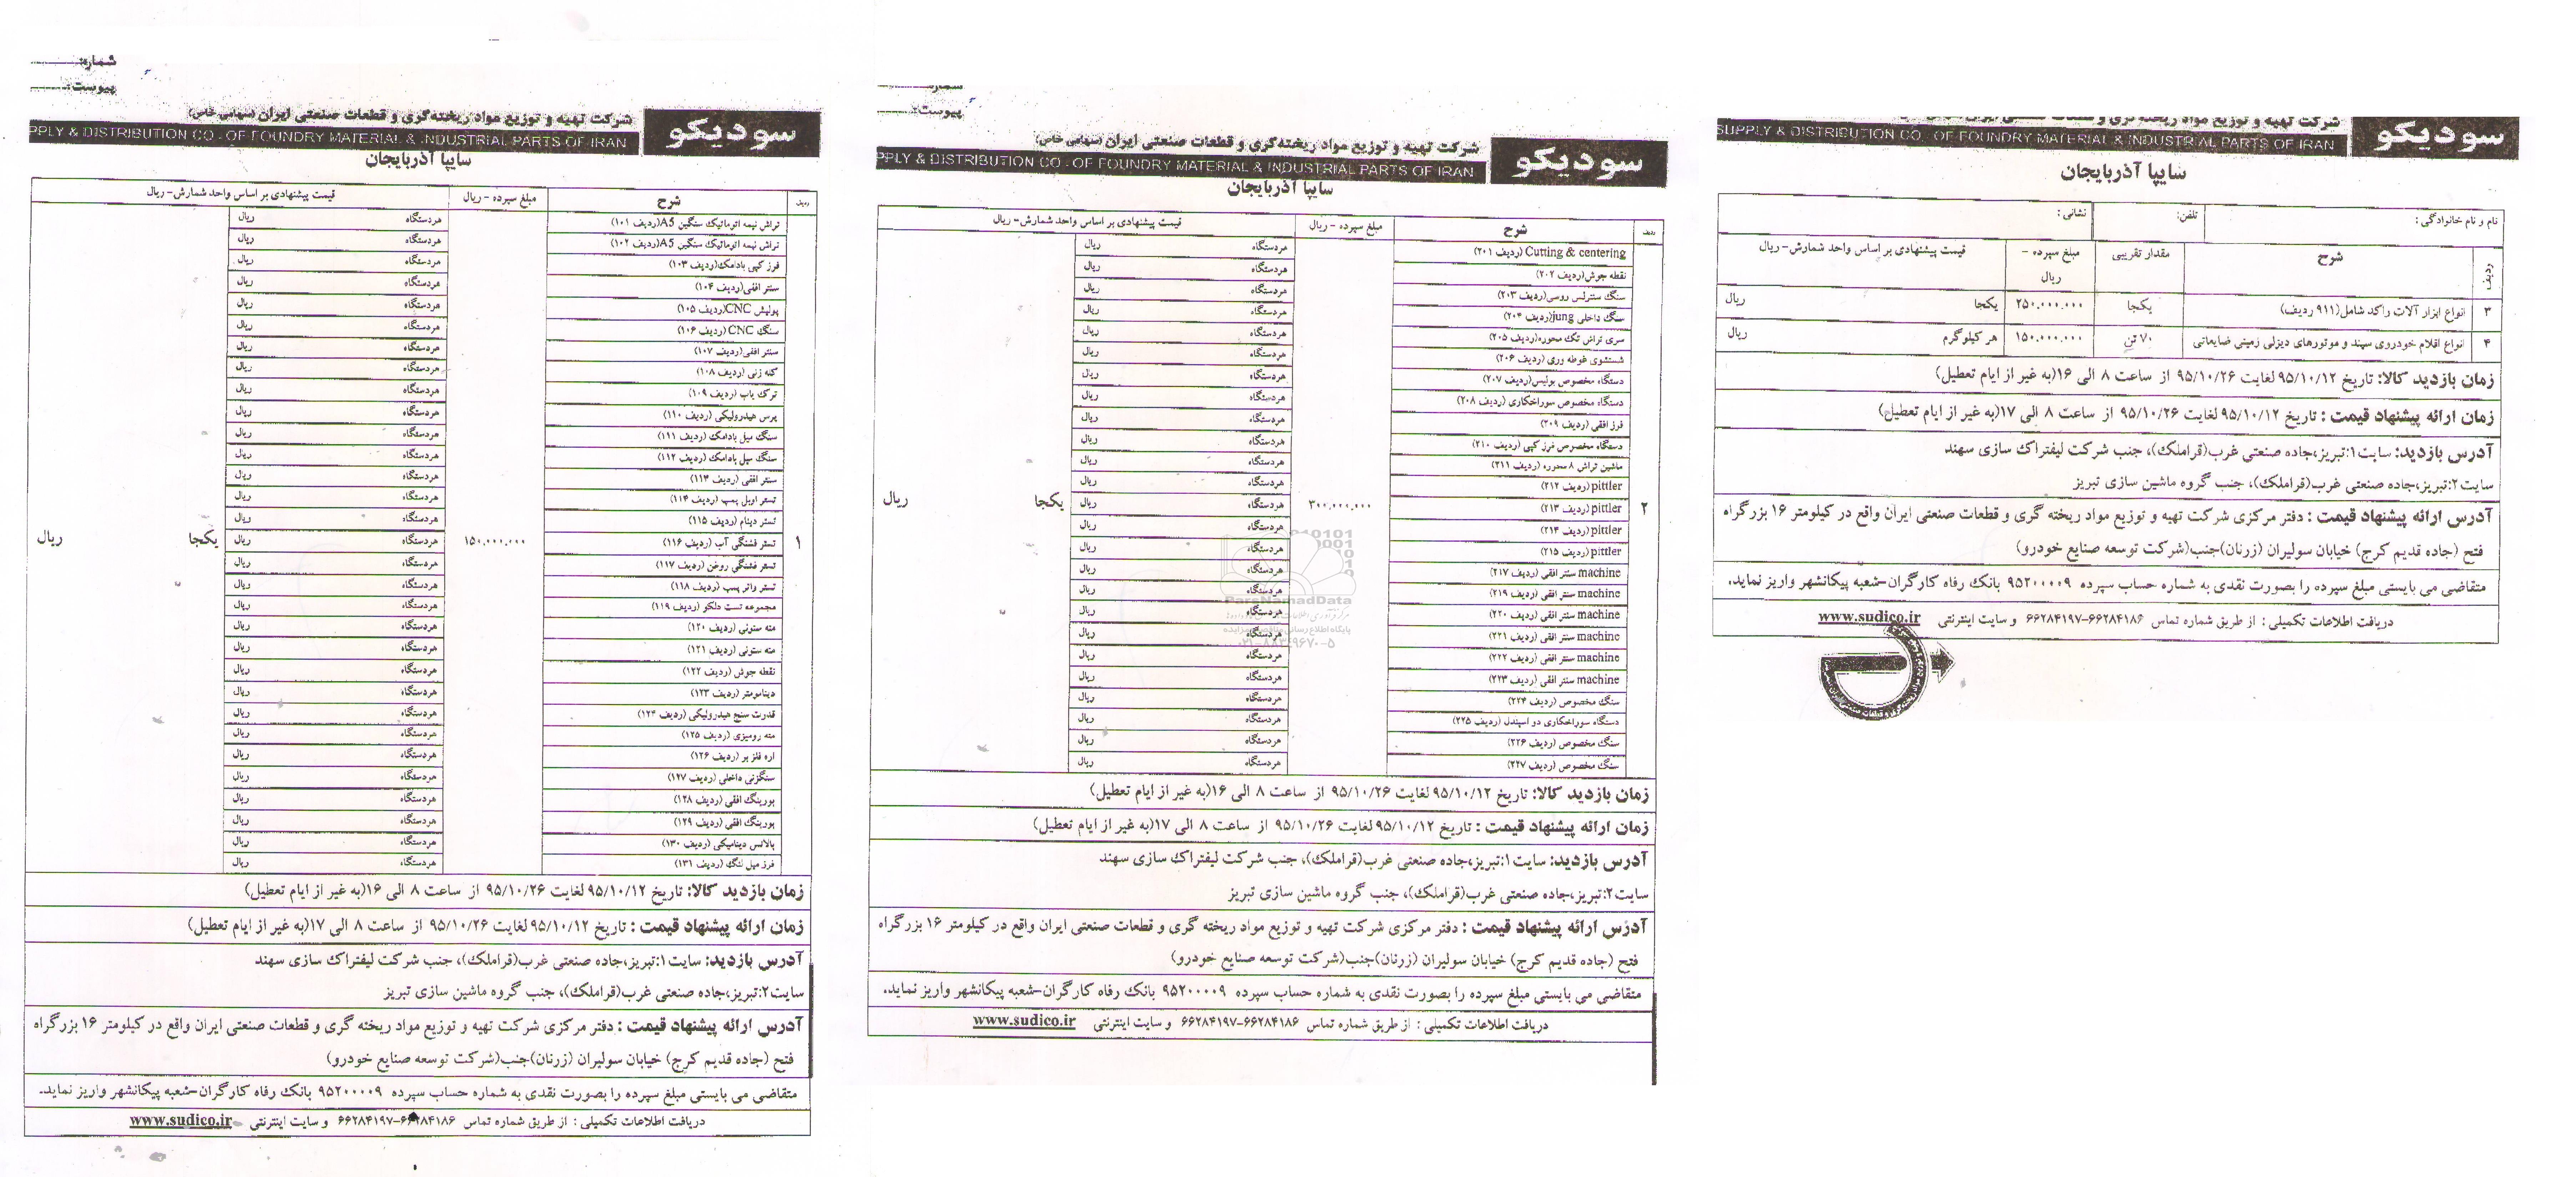 شماره:
پیوست:
سودیکو
شرکت تهیه و توزیع مواد ریخته‌گری و قطعات صنعتی ایران (سهامی خاص)
PPLY & DISTRIBUTION CO. OF FOUNDRY MATERIAL & INDUSTRIAL PARTS OF IRAN
سایپا آذربایجان
ردیف شرح مبلغ سپرده - ریال قیمت پیشنهادی بر اساس واحد شمارش- ریال
۱ ۱۵۰.۰۰۰.۰۰۰ یکجا ریال
تراش نیمه اتوماتیک سنگین A5(ردیف ۱۰۱) هردستگاه ریال
تراش نیمه اتوماتیک سنگین A5(ردیف ۱۰۲) هردستگاه ریال
فرز کپی بادامک(ردیف ۱۰۳) هردستگاه ریال
سنتر افقی(ردیف ۱۰۴) هردستگاه ریال
پولیش CNC(ردیف ۱۰۵) هردستگاه ریال
سنگ CNC (ردیف ۱۰۶) هردستگاه ریال
سنتر افقی(ردیف ۱۰۷) هردستگاه ریال
کله زنی (ردیف ۱۰۸) هردستگاه ریال
ترک یاب (ردیف ۱۰۹) هردستگاه ریال
پرس هیدرولیکی (ردیف ۱۱۰) هردستگاه ریال
سنگ میل بادامک (ردیف ۱۱۱) هردستگاه ریال
سنگ میل بادامک (ردیف ۱۱۲) هردستگاه ریال
سنتر افقی (ردیف ۱۱۳) هردستگاه ریال
تستر اویل پمپ (ردیف ۱۱۴) هردستگاه ریال
تستر دینام (ردیف ۱۱۵) هردستگاه ریال
تستر فشنگی آب (ردیف ۱۱۶) هردستگاه ریال
تستر فشنگی روغن (ردیف ۱۱۷) هردستگاه ریال
تستر واتر پمپ (ردیف ۱۱۸) هردستگاه ریال
مجموعه تست دلکو (ردیف ۱۱۹) هردستگاه ریال
مته ستونی (ردیف ۱۲۰) هردستگاه ریال
مته ستونی (ردیف ۱۲۱) هردستگاه ریال
نقطه جوش (ردیف ۱۲۲) هردستگاه ریال
دینامومتر (ردیف ۱۲۳) هردستگاه ریال
قدرت سنج هیدرولیکی (ردیف ۱۲۴) هردستگاه ریال
مته رومیزی (ردیف ۱۲۵) هردستگاه ریال
اره فلز بر (ردیف ۱۲۶) هردستگاه ریال
سنگزنی داخلی (ردیف ۱۲۷) هردستگاه ریال
بورینگ افقی (ردیف ۱۲۸) هردستگاه ریال
بورینگ افقی (ردیف ۱۲۹) هردستگاه ریال
بالانس دینامیکی (ردیف ۱۳۰) هردستگاه ریال
فرز میل لنگ (ردیف ۱۳۱) هردستگاه ریال
زمان بازدید کالا: تاریخ ۹۵/۱۰/۱۲ لغایت ۹۵/۱۰/۲۶ از ساعت ۸ الی ۱۶(به غیر از ایام تعطیل)
زمان ارائه پیشنهاد قیمت : تاریخ ۹۵/۱۰/۱۲ لغایت ۹۵/۱۰/۲۶ از ساعت ۸ الی ۱۷(به غیر از ایام تعطیل)
آدرس بازدید: سایت۱:تبریز،جاده صنعتی غرب(قراملک)، جنب شرکت لیفتراک سازی سهند
سایت۲:تبریز،جاده صنعتی غرب(قراملک)، جنب گروه ماشین سازی تبریز
آدرس ارائه پیشنهاد قیمت : دفتر مرکزی شرکت تهیه و توزیع مواد ریخته گری و قطعات صنعتی ایران واقع در کیلومتر ۱۶ بزرگراه
فتح (جاده قدیم کرج) خیابان سولیران (زرنان)جنب(شرکت توسعه صنایع خودرو)
متقاضی می بایستی مبلغ سپرده را بصورت نقدی به شماره حساب سپرده ۹۵۲۰۰۰۰۹ بانک رفاه کارگران-شعبه پیکانشهر واریز نماید.
دریافت اطلاعات تکمیلی : از طریق شماره تماس ۶۶۲۸۴۱۸۶-۶۶۲۸۴۱۹۷ و سایت اینترنتی www.sudico.ir
پیوست:
سودیکو
شرکت تهیه و توزیع مواد ریخته‌گری و قطعات صنعتی ایران (سهامی خاص)
PPLY & DISTRIBUTION CO. OF FOUNDRY MATERIAL & INDUSTRIAL PARTS OF IRAN
سایپا آذربایجان
ردیف شرح مبلغ سپرده - ریال قیمت پیشنهادی بر اساس واحد شمارش- ریال
۲ ۳۰۰.۰۰۰.۰۰۰ یکجا ریال
Cutting & centering (ردیف ۲۰۱) هردستگاه ریال
نقطه جوش(ردیف ۲۰۲) هردستگاه ریال
سنگ سنترلس روسی(ردیف ۲۰۳) هردستگاه ریال
سنگ داخلی jung(ردیف ۲۰۴) هردستگاه ریال
سری تراش تک محوره(ردیف ۲۰۵) هردستگاه ریال
شستشوی غوطه وری (ردیف ۲۰۶) هردستگاه ریال
دستگاه مخصوص پولیس(ردیف ۲۰۷) هردستگاه ریال
دستگاه مخصوص سوراخکاری (ردیف ۲۰۸) هردستگاه ریال
فرز افقی (ردیف ۲۰۹) هردستگاه ریال
دستگاه مخصوص فرز کپی (ردیف ۲۱۰) هردستگاه ریال
ماشین تراش ۸ محوره (ردیف ۲۱۱) هردستگاه ریال
pittler(ردیف ۲۱۲) هردستگاه ریال
pittler(ردیف ۲۱۳) هردستگاه ریال
pittler(ردیف ۲۱۴) هردستگاه ریال
pittler(ردیف ۲۱۵) هردستگاه ریال
machine سنتر افقی (ردیف ۲۱۷) هردستگاه ریال
machine سنتر افقی (ردیف ۲۱۹) هردستگاه ریال
machine سنتر افقی (ردیف ۲۲۰) هردستگاه ریال
machine سنتر افقی (ردیف ۲۲۱) هردستگاه ریال
machine سنتر افقی (ردیف ۲۲۲) هردستگاه ریال
machine سنتر افقی (ردیف ۲۲۳) هردستگاه ریال
سنگ مخصوص (ردیف ۲۲۴) هردستگاه ریال
دستگاه سوراخکاری دو اسپندل (ردیف ۲۲۵) هردستگاه ریال
سنگ مخصوص (ردیف ۲۲۶) هردستگاه ریال
سنگ مخصوص (ردیف ۲۲۷) هردستگاه ریال
ParsNamadData
زمان بازدید کالا: تاریخ ۹۵/۱۰/۱۲ لغایت ۹۵/۱۰/۲۶ از ساعت ۸ الی ۱۶(به غیر از ایام تعطیل)
زمان ارائه پیشنهاد قیمت : تاریخ ۹۵/۱۰/۱۲ لغایت ۹۵/۱۰/۲۶ از ساعت ۸ الی ۱۷(به غیر از ایام تعطیل)
آدرس بازدید: سایت۱:تبریز،جاده صنعتی غرب(قراملک)، جنب شرکت لیفتراک سازی سهند
سایت۲:تبریز،جاده صنعتی غرب(قراملک)، جنب گروه ماشین سازی تبریز
آدرس ارائه پیشنهاد قیمت : دفتر مرکزی شرکت تهیه و توزیع مواد ریخته گری و قطعات صنعتی ایران واقع در کیلومتر ۱۶ بزرگراه
فتح (جاده قدیم کرج) خیابان سولیران (زرنان)جنب(شرکت توسعه صنایع خودرو)
متقاضی می بایستی مبلغ سپرده را بصورت نقدی به شماره حساب سپرده ۹۵۲۰۰۰۰۹ بانک رفاه کارگران-شعبه پیکانشهر واریز نماید.
دریافت اطلاعات تکمیلی : از طریق شماره تماس ۶۶۲۸۴۱۸۶-۶۶۲۸۴۱۹۷ و سایت اینترنتی www.sudico.ir
سودیکو
شرکت تهیه و توزیع مواد ریخته گری و قطعات صنعتی ایران
SUPPLY & DISTRIBUTION CO. OF FOUNDRY MATERIAL & INDUSTRIAL PARTS OF IRAN
سایپا آذربایجان
نام و نام خانوادگی: تلفن: نشانی:
ردیف شرح مقدار تقریبی مبلغ سپرده - ریال قیمت پیشنهادی بر اساس واحد شمارش- ریال
۳ انواع ابزار آلات راکد شامل(۹۱۱ ردیف) یکجا ۲۵۰.۰۰۰.۰۰۰ یکجا ریال
۴ انواع اقلام خودروی سپند و موتورهای دیزلی زمینی ضایعاتی ۷۰ تن ۱۵۰.۰۰۰.۰۰۰ هر کیلوگرم ریال
زمان بازدید کالا: تاریخ ۹۵/۱۰/۱۲ لغایت ۹۵/۱۰/۲۶ از ساعت ۸ الی ۱۶(به غیر از ایام تعطیل)
زمان ارائه پیشنهاد قیمت : تاریخ ۹۵/۱۰/۱۲ لغایت ۹۵/۱۰/۲۶ از ساعت ۸ الی ۱۷(به غیر از ایام تعطیل)
آدرس بازدید: سایت۱:تبریز،جاده صنعتی غرب(قراملک)، جنب شرکت لیفتراک سازی سهند
سایت۲:تبریز،جاده صنعتی غرب(قراملک)، جنب گروه ماشین سازی تبریز
آدرس ارائه پیشنهاد قیمت : دفتر مرکزی شرکت تهیه و توزیع مواد ریخته گری و قطعات صنعتی ایران واقع در کیلومتر ۱۶ بزرگراه
فتح (جاده قدیم کرج) خیابان سولیران (زرنان)جنب(شرکت توسعه صنایع خودرو)
متقاضی می بایستی مبلغ سپرده را بصورت نقدی به شماره حساب سپرده ۹۵۲۰۰۰۰۹ بانک رفاه کارگران-شعبه پیکانشهر واریز نماید.
دریافت اطلاعات تکمیلی : از طریق شماره تماس ۶۶۲۸۴۱۸۶-۶۶۲۸۴۱۹۷ و سایت اینترنتی www.sudico.ir